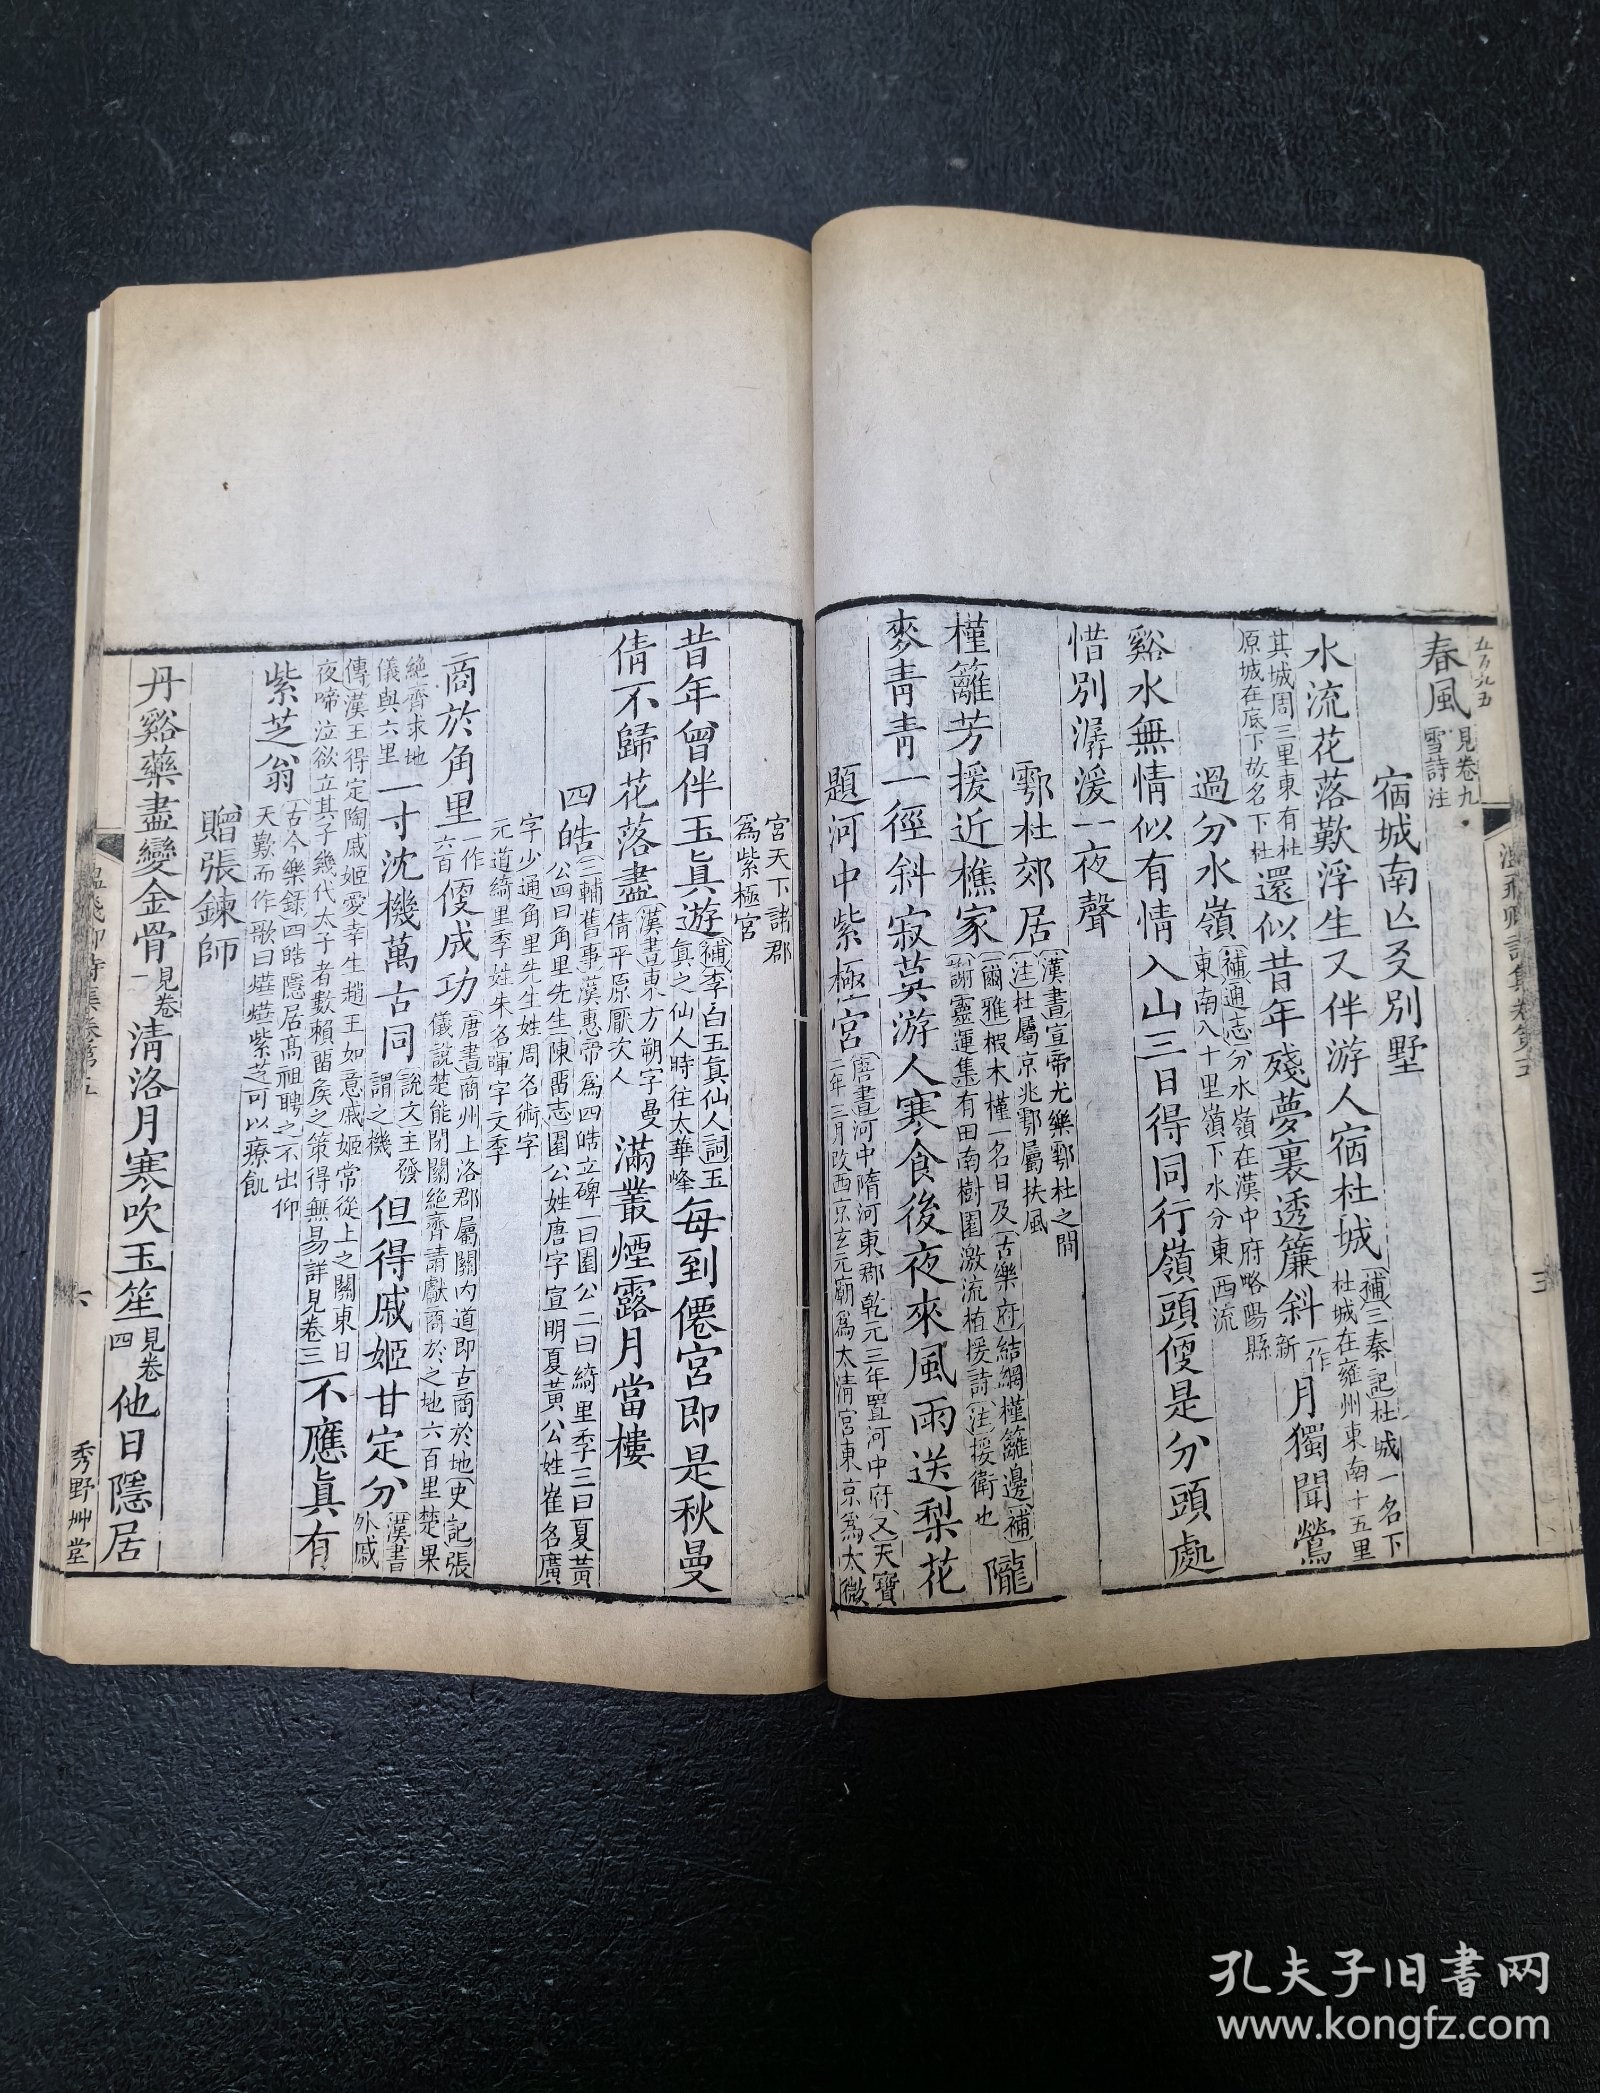 春風見卷九雪詩注
宿城南亾友別墅
水流花落歎浮生又伴游人宿杜城補三秦記杜城一名下杜城在雍州東南十五里
其城周三里東有杜原城在底下故名下杜還似昔年殘夢裏透簾斜一作新月獨聞鶯
過分水嶺補通志分水嶺在漢中府略陽縣東南八十里嶺下水分東西流
谿水無情似有情入山三日得同行嶺頭便是分頭處
惜別潺湲一夜聲
鄠杜郊居漢書宣帝尤樂鄠杜之間注杜屬京兆鄠屬扶風
槿籬芳援近樵家爾雅椴木槿一名日及古樂府結網槿籬邊補謝靈運集有田南樹園激流植援詩注援衛也隴
麥青青一徑斜寂莫游人寒食後夜來風雨送梨花
題河中紫極宮唐書河中隋河東郡乾元三年置河中府又天寶二年三月改西京玄元廟爲太清宮東京爲太微
宮天下諸郡爲紫極宮
昔年曾伴玉眞遊補李白玉眞仙人詞玉眞之仙人時往太華峰每到僊宮即是秋曼
倩不歸花落盡漢書東方朔字曼倩平原厭次人滿叢煙露月當樓
四皓三輔舊事漢惠帝爲四皓立碑一曰園公二曰綺里季三曰夏黃公四曰角里先生陳畱志園公姓唐字宣明夏黃公姓崔名廣
字少通角里先生姓周名術字元道綺里季姓朱名暉字文季
商於角里一作六百便成功唐書商州上洛郡屬關內道即古商於地史記張儀說楚能閉關絶齊請獻商於之地六百里楚果
絶齊求地儀與六里一寸沈機萬古同說文主發謂之機但得戚姬甘定分漢書外戚
傳漢王得定陶戚姬愛幸生趙王如意戚姬常從上之關東日夜啼泣欲立其子幾代太子者數賴畱矦之策得無易詳見卷三不應眞有
紫芝翁古今樂錄四皓隱居高祖聘之不出仰天歎而作歌曰燁燁紫芝可以療飢
贈張鍊師
丹谿藥盡變金骨見卷一清洛月寒吹玉笙見卷四他日隱居
溫飛卿詩集卷第五
六
秀野艸堂
孔夫子旧书网
www.kongfz.com